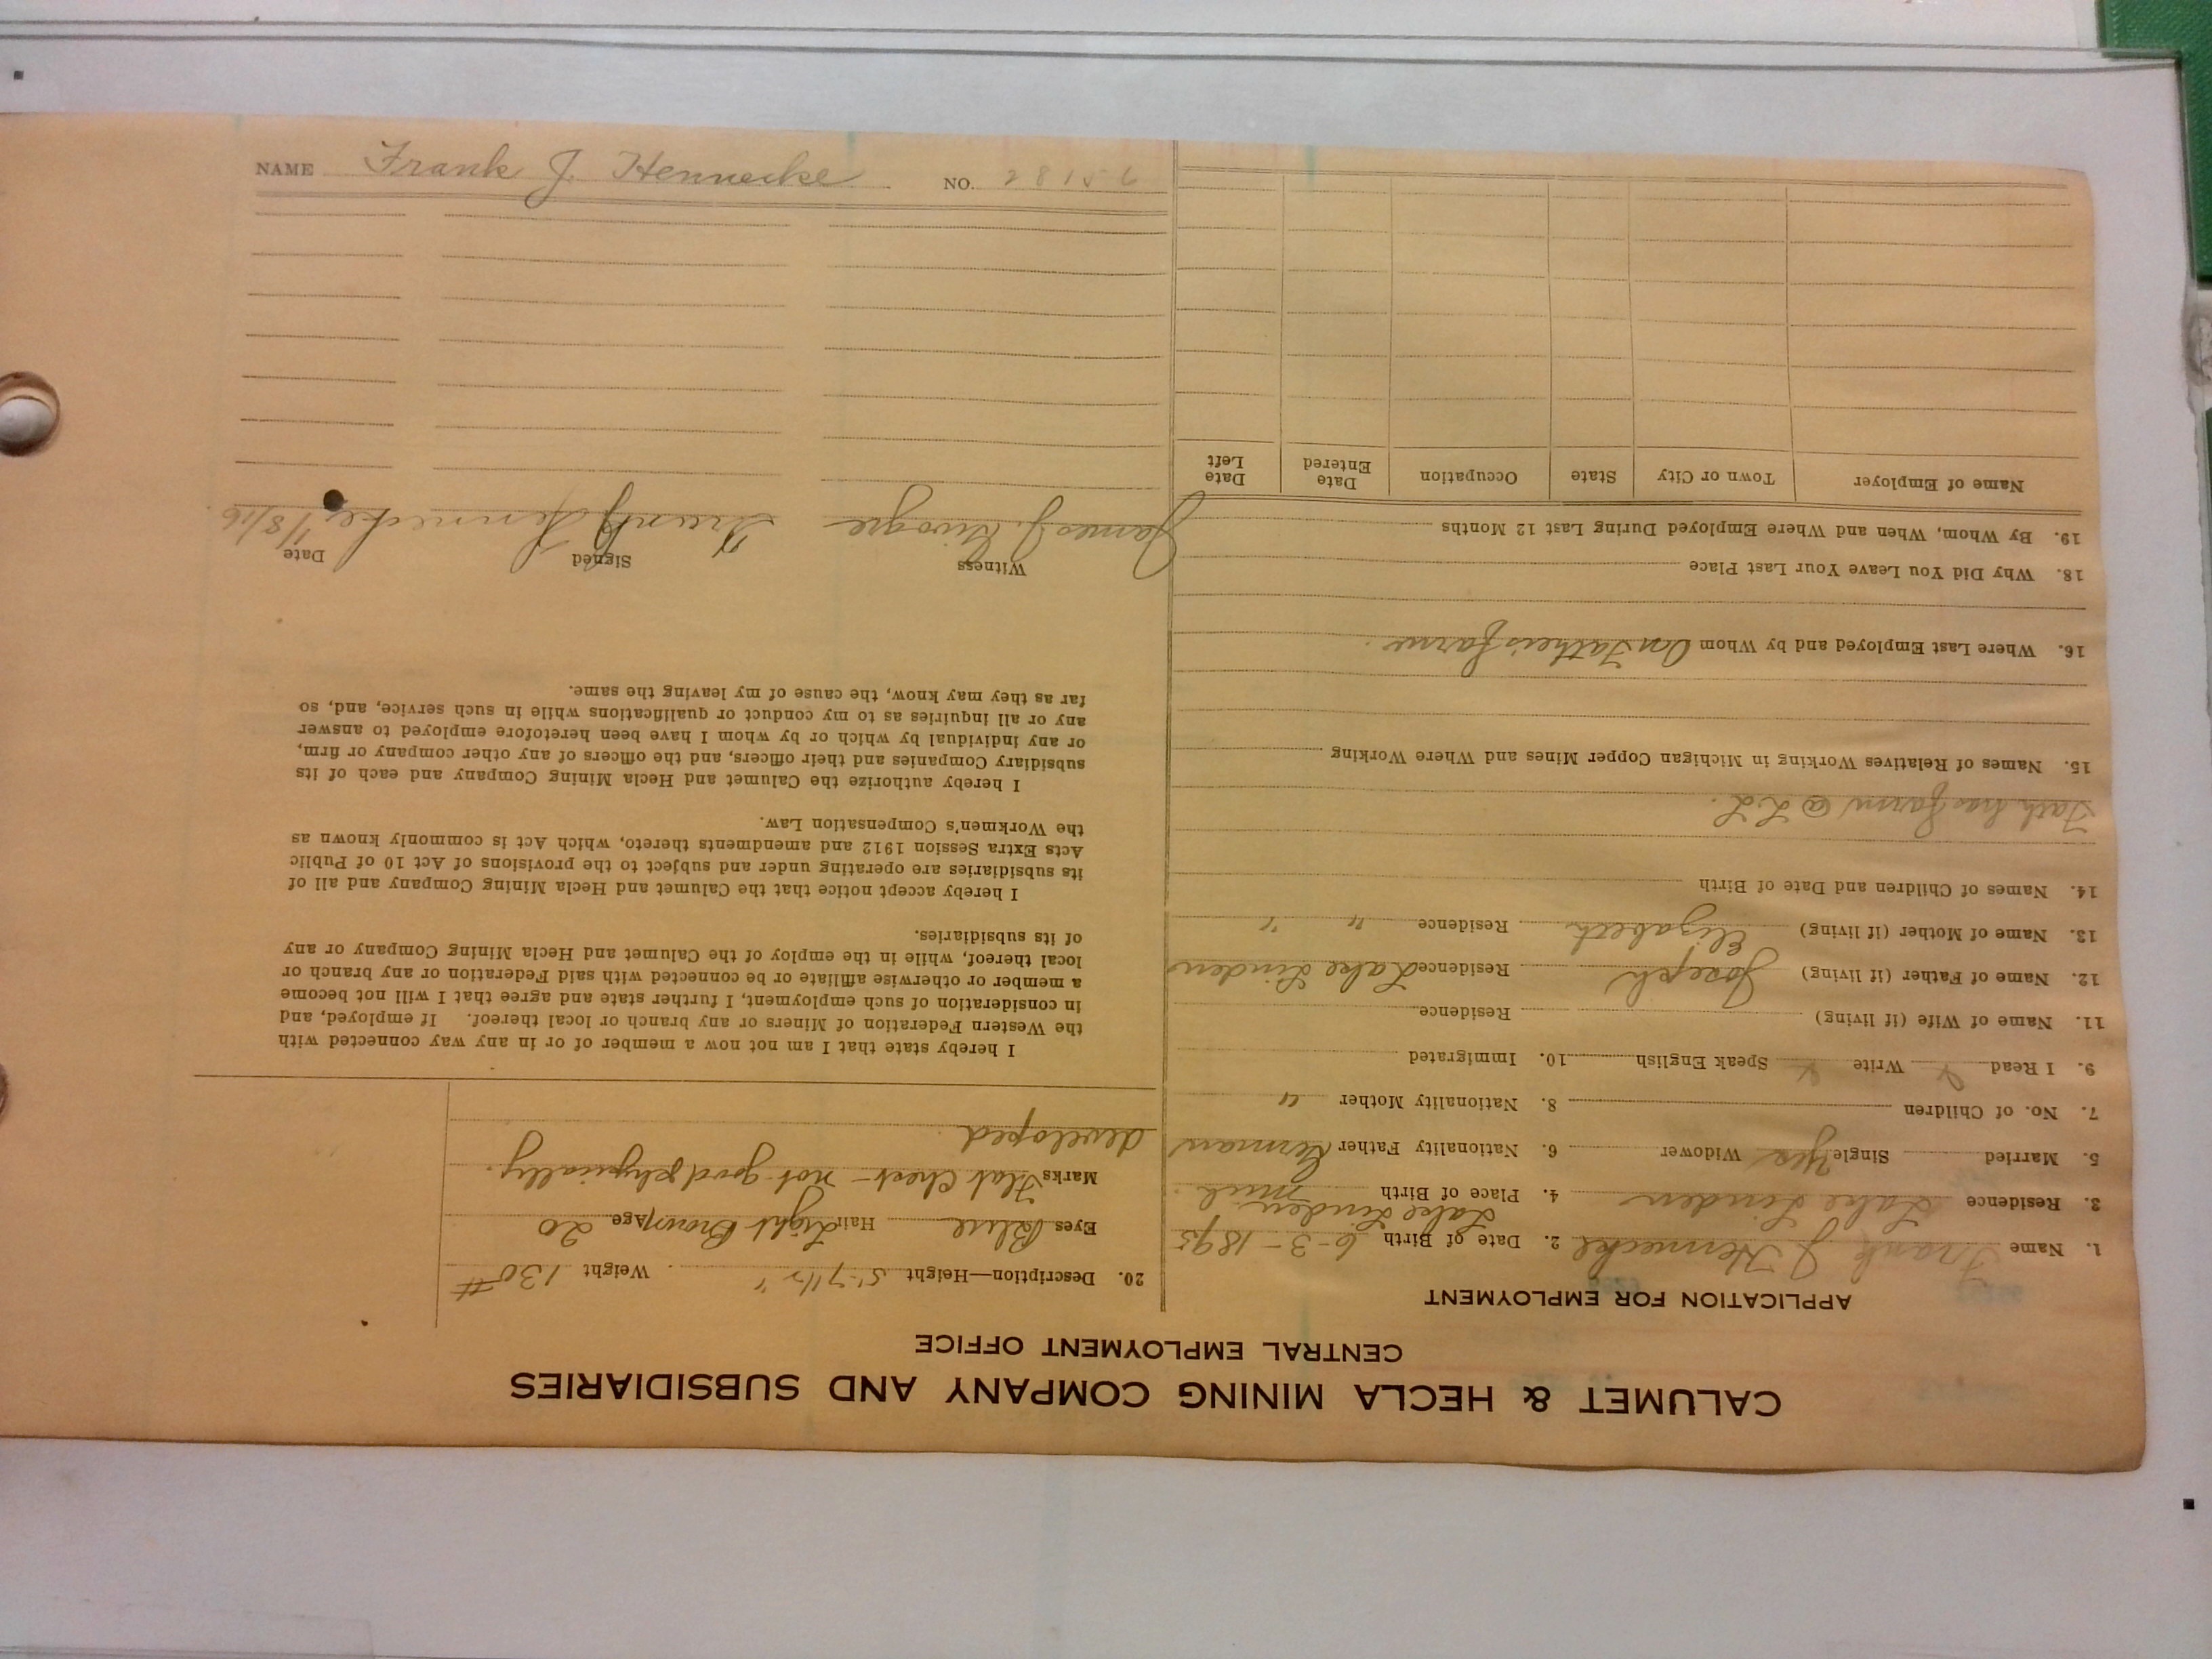 CALUMET & HECLA MINING COMPANY AND SUBSIDIARIES
CENTRAL EMPLOYMENT OFFICE
APPLICATION FOR EMPLOYMENT
1. Name Frank J Hennecke 2. Date of Birth 6-3-1895
3. Residence Lake Linden 4. Place of Birth Lake Linden Mich.
5. Married Single Yes Widower 6. Nationality Father German
7. No. of Children 8. Nationality Mother "
9. I Read Write Speak English 10. Immigrated
11. Name of Wife (if living) Residence
12. Name of Father (if living) Joseph Residence Lake Linden
13. Name of Mother (if living) Elizabeth Residence " "
14. Names of Children and Date of Birth
Fath has farm @ L L.
15. Names of Relatives Working in Michigan Copper Mines and Where Working
16. Where Last Employed and by Whom On Father's farm.
18. Why Did You Leave Your Last Place
19. By Whom, When and Where Employed During Last 12 Months
Name of Employer Town or City State Occupation Date Entered Date Left
20. Description—Height 5'-7 1/2" Weight 130 #
Eyes Blue Hair Light Brown Age 20
Marks Flat Chest - not good physically.
developed
I hereby state that I am not now a member of or in any way connected with
the Western Federation of Miners or any branch or local thereof. If employed, and
in consideration of such employment, I further state and agree that I will not become
a member or otherwise affiliate or be connected with said Federation or any branch or
local thereof, while in the employ of the Calumet and Hecla Mining Company or any
of its subsidiaries.
I hereby accept notice that the Calumet and Hecla Mining Company and all of
its subsidiaries are operating under and subject to the provisions of Act 10 of Public
Acts Extra Session 1912 and amendments thereto, which Act is commonly known as
the Workmen's Compensation Law.
I hereby authorize the Calumet and Hecla Mining Company and each of its
subsidiary Companies and their officers, and the officers of any other company or firm,
or any individual by which or by whom I have been heretofore employed to answer
any or all inquiries as to my conduct or qualifications while in such service, and, so
far as they may know, the cause of my leaving the same.
Witness Signed Date
James J. Frank J Hennecke 1/8/16
NAME Frank J. Hennecke NO.